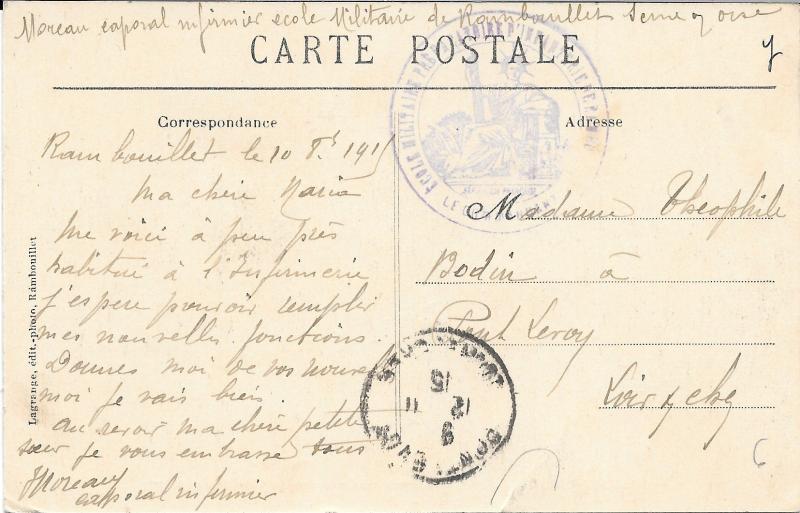 Moreau caporal infirmier ecole Militaire de Rambouillet Seine & oise
CARTE POSTALE
Correspondance
Adresse
ECOLE MILITAIRE D'INFANTERIE DE
LE
Rambouillet le 10 1915
Ma chère Maria
Me voici à peu près
habitué à l'Infirmerie
j'espere pouvoir remplir
mes nouvelles fonctions.
Donnes moi de vos nouvelles
moi je vais bien.
au revoir ma chère petite
sœur je vous embrasse tous
Moreau
caporal infirmier
Madame Théophile
Bodin à
Pont Leroy
Loir & cher
15
12
9
Lagrange, édit.-photo, Rambouillet